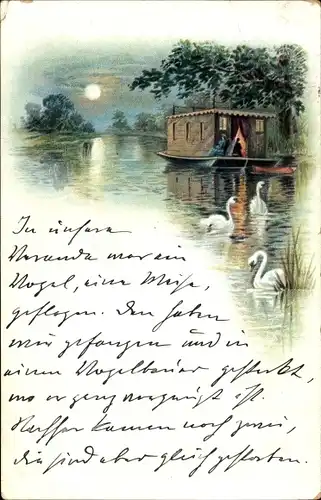 In unsere
Veranda war ein
Vogel, eine Meise,
geflogen. Den haben
wir gefangen und in
einen Vogelbauer gesteckt,
wo er ganz vergnügt ist.
Nachher kamen noch zwei,
die sind aber gleich gestorben.